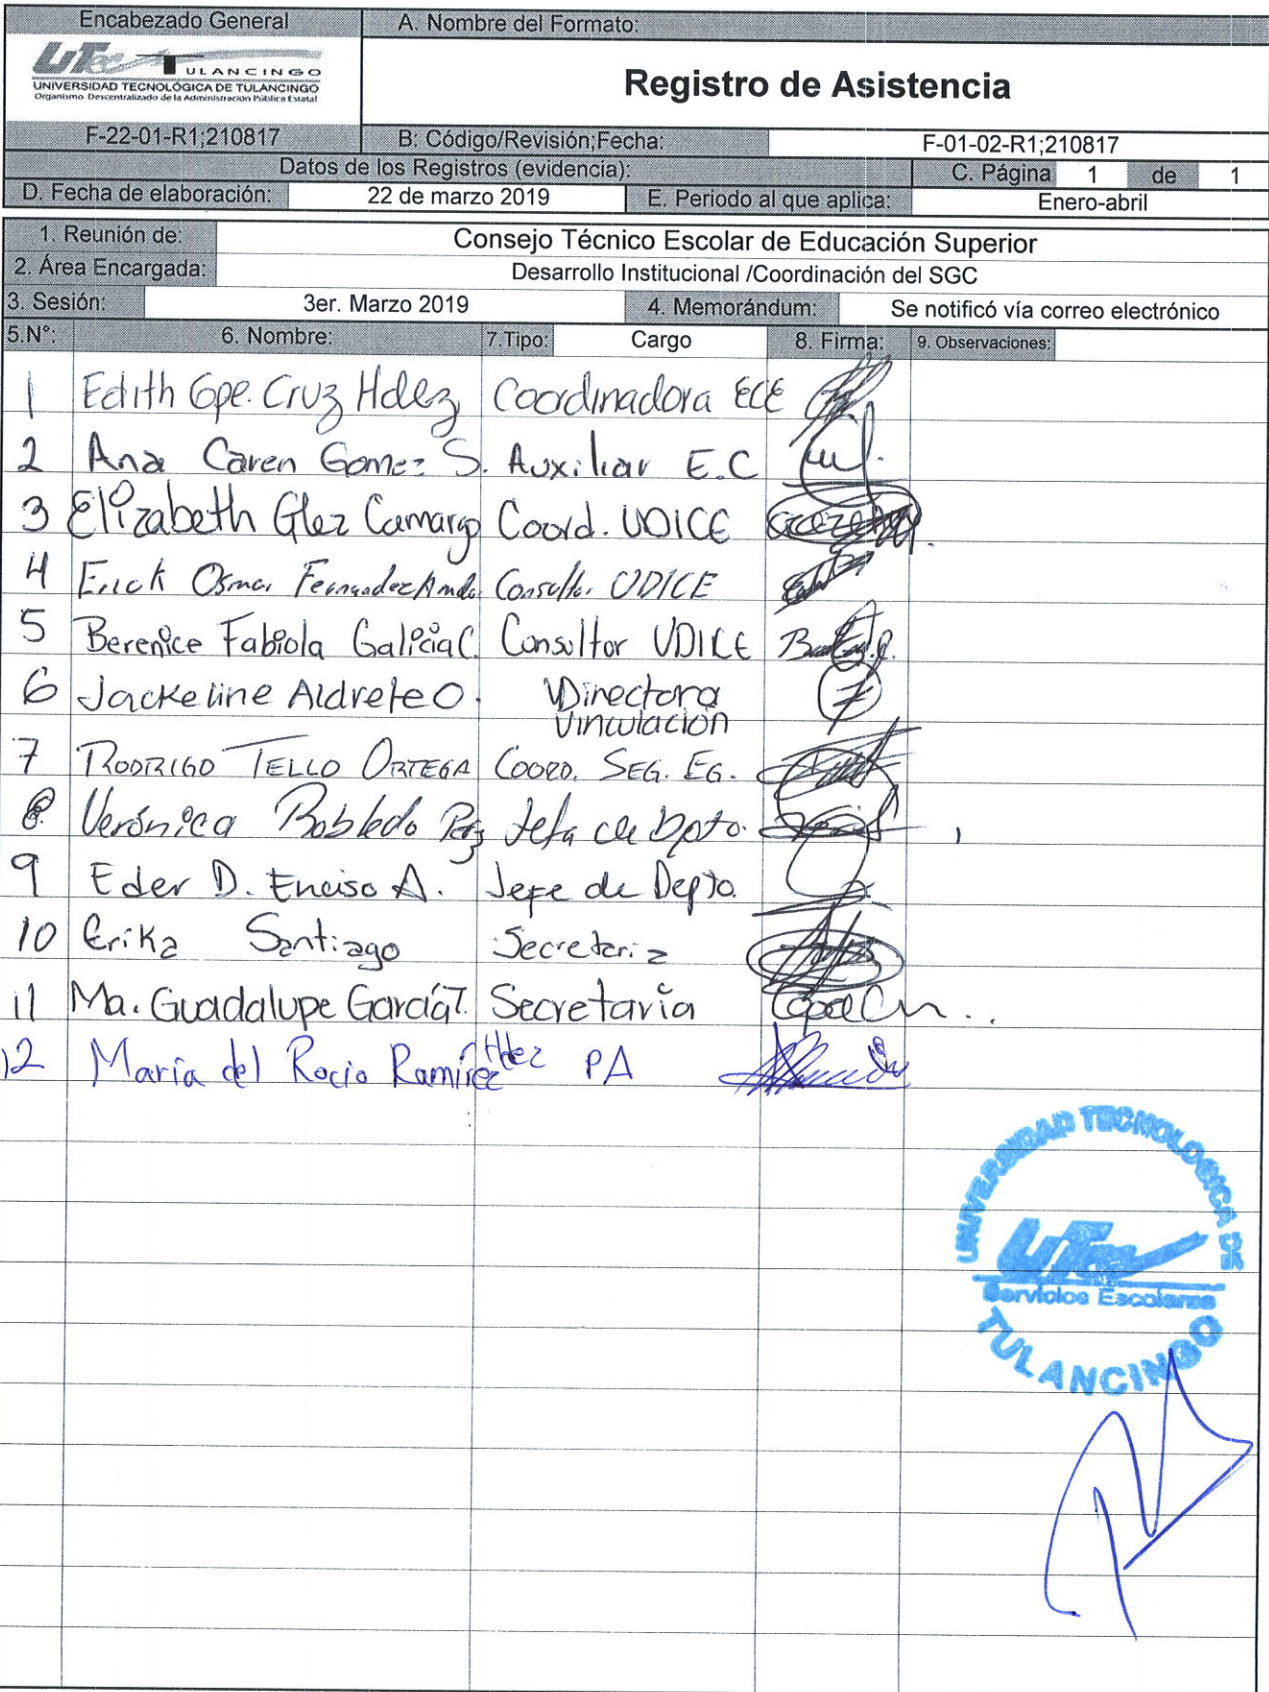 Encabezado General A. Nombre del Formato:
UTec TULANCINGO
UNIVERSIDAD TECNOLÓGICA DE TULANCINGO
Organismo Descentralizado de la Administración Pública Estatal
Registro de Asistencia
F-22-01-R1;210817 B: Código/Revisión;Fecha: F-01-02-R1;210817
Datos de los Registros (evidencia): C. Página 1 de 1
D. Fecha de elaboración: 22 de marzo 2019 E. Periodo al que aplica: Enero-abril
1. Reunión de: Consejo Técnico Escolar de Educación Superior
2. Área Encargada: Desarrollo Institucional /Coordinación del SGC
3. Sesión: 3er. Marzo 2019 4. Memorándum: Se notificó vía correo electrónico
5.N°: 6. Nombre: 7.Tipo: Cargo 8. Firma: 9. Observaciones:
1 Edith Gpe. Cruz Hdez Coordinadora ECE
2 Ana Caren Gomez S. Auxiliar E.C
3 Elizabeth Glez Camargo Coord. UDICE
4 Erick Osmar Fernandez Consultor UDICE
5 Berenice Fabiola Galicia C. Consultor UDICE
6 Jackeline Aldrete O. Directora
Vinculación
7 RODRIGO TELLO ORTEGA COORD. SEG. EG.
8 Verónica Robledo Jefa de Dpto.
9 Eder D. Enciso A. Jefe de Depto.
10 Erika Santiago Secretaria
11 Ma. Guadalupe García T. Secretaría
12 María del Rocio Ramírez Hdez PA
UNIVERSIDAD TECNOLOGICA DE
UTec
Servicios Escolares
TULANCINGO